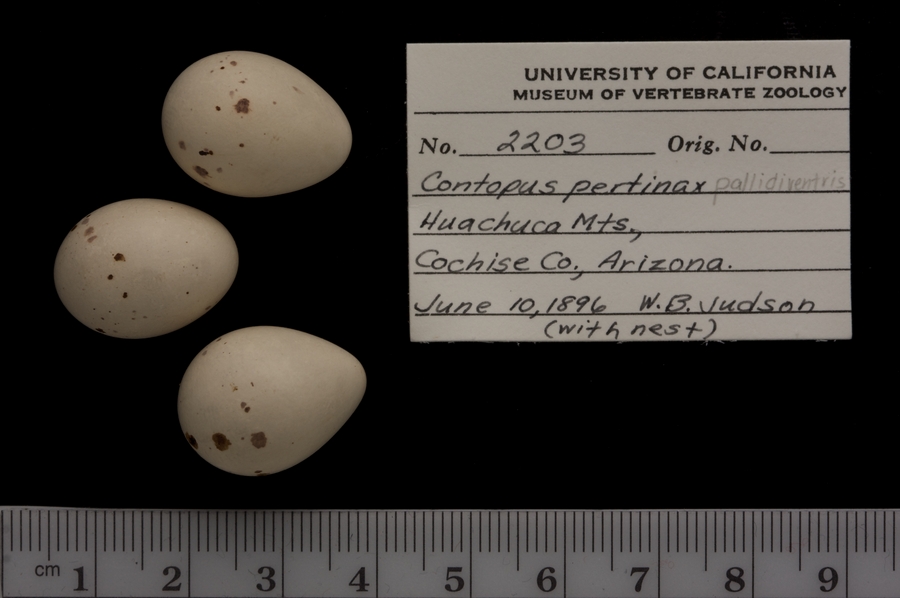 UNIVERSITY OF CALIFORNIA
MUSEUM OF VERTEBRATE ZOOLOGY
No. 2203 Orig. No.
Contopus pertinax pallidiventris
Huachuca Mts.,
Cochise Co., Arizona.
June 10, 1896 W. B. Judson
(with nest)
cm 1 2 3 4 5 6 7 8 9